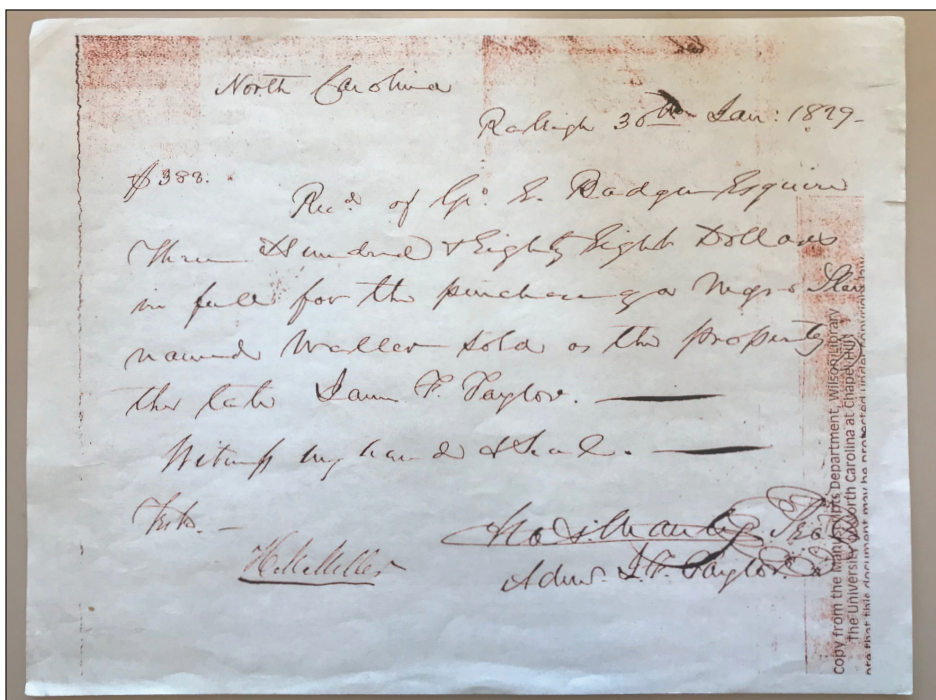 North Carolina
Raleigh 30th Jan: 1829
$388.
Recd of Go. E. Badger Esquire
Three Hundred & Eighty Eight Dollars
in full for the purchase of a Negro Slave
named Waller sold as the property of
the late James F. Taylor.
Witness my hand & Seal.
Test.
H. M. Miller
Admr. J. F. Taylor
Copy from the Manuscripts Department, Wilson Library
The University of North Carolina at Chapel Hill
that this document may be protected under copyright law